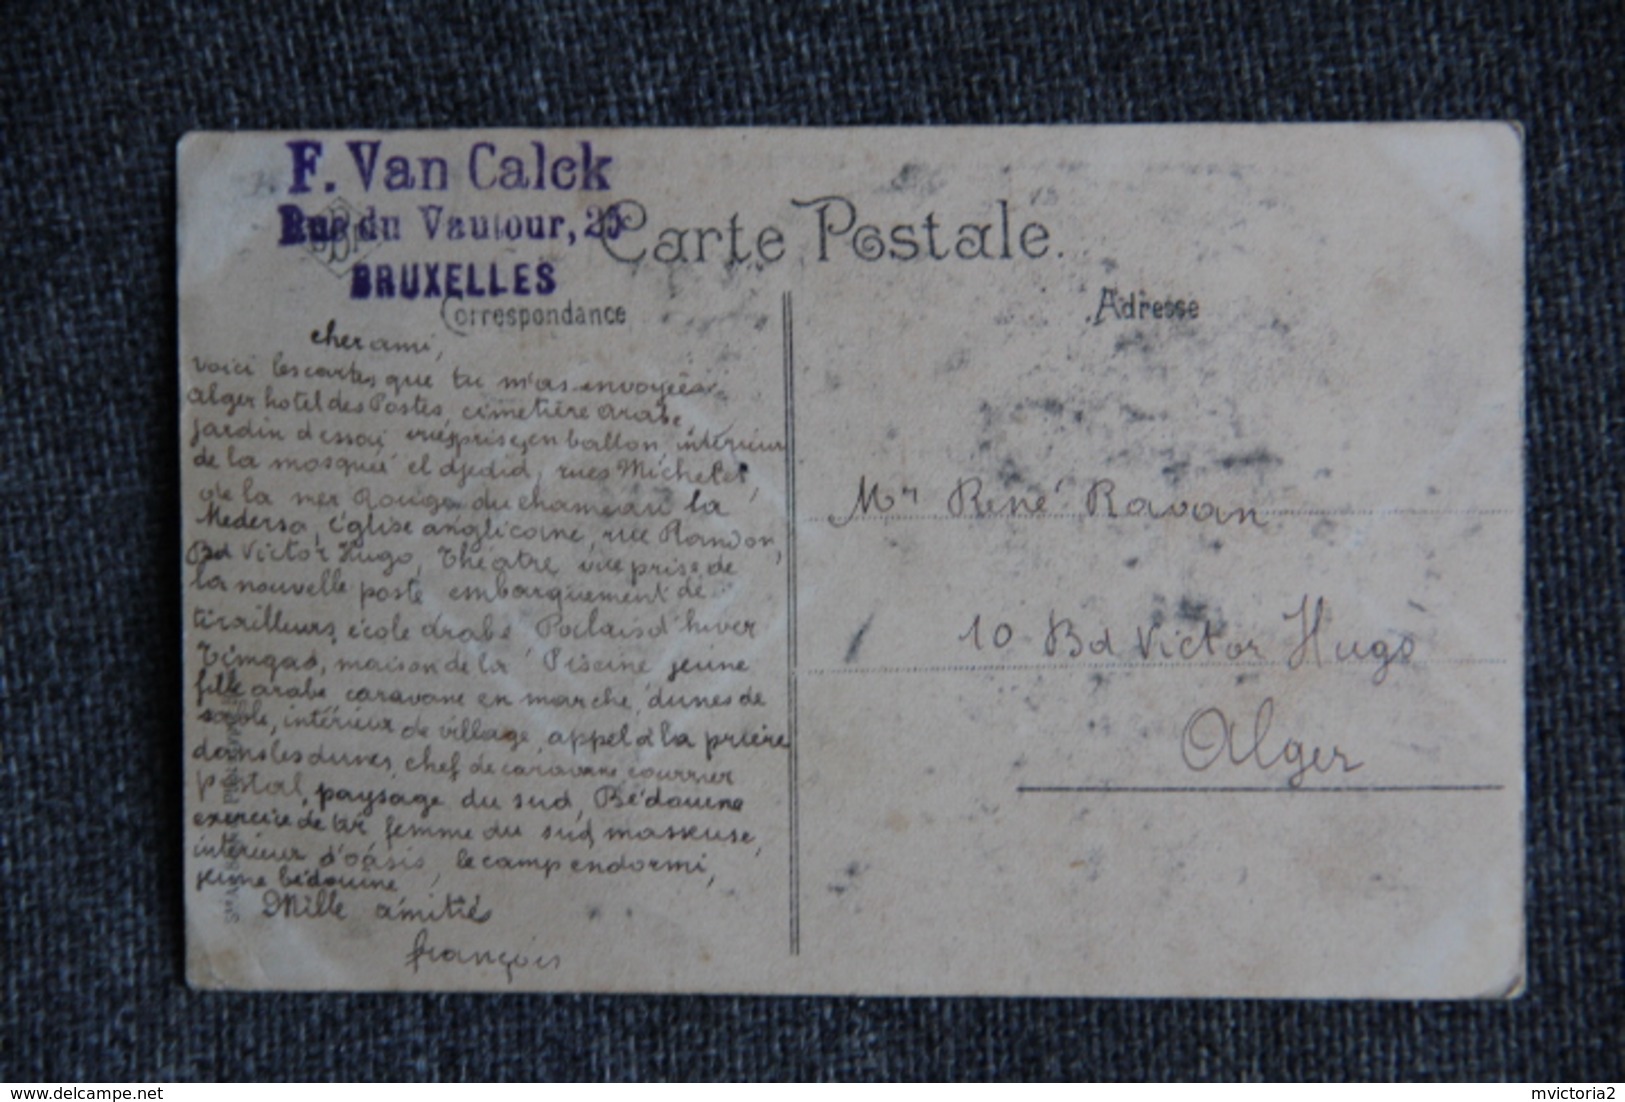 F. Van Calck
Rue du Vautour, 25
BRUXELLES
Carte Postale.
Correspondance
Adresse
cher ami,
voici les cartes que tu m'as envoyées.
Alger hotel des Postes, cimetière arabe,
jardin d'essai vue prise en ballon, intérieur
de la mosquée el djedid, rues Michelet,
de la mer Rouge du chameau la
Medersa, église anglicane, rue Randon,
Bd Victor Hugo, Théatre, vue prise de
la nouvelle poste embarquement de
tirailleurs, école arabe Palais d'hiver
Timgad, maison de la Piscine jeune
fille arabe caravane en marche, dunes de
sable, intérieur de village, appel à la prière
dans les dunes, chef de caravane courrier
postal, paysage du sud, Bédouine
exercice de tir femme du sud masseuse,
intérieur d'oásis, le camp endormi,
jeune bédouine
Mille amitiés
françois
Mr René Ravan
10 Bd Victor Hugo
Alger
delcampe.net
mvictoria2